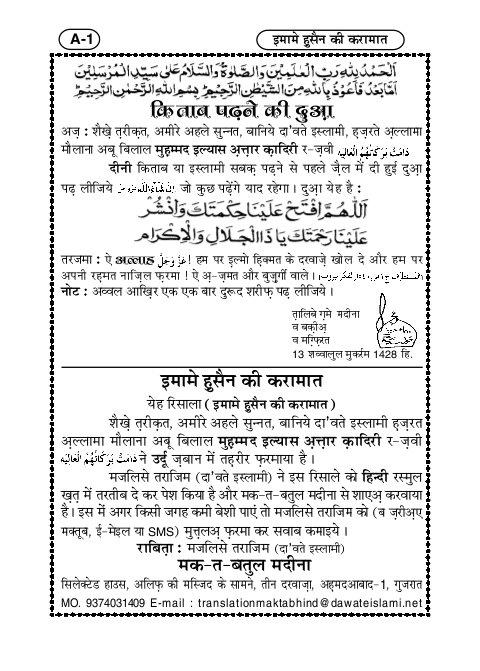 A-1
इमामे हुसैन की करामात
اَلْحَمْدُ لِلّٰهِ رَبِّ الْعٰلَمِيْنَ وَالصَّلٰوةُ وَالسَّلَامُ عَلٰى سَيِّدِ الْمُرْسَلِيْنَ
اَمَّا بَعْدُ فَاَعُوْذُ بِاللّٰهِ مِنَ الشَّيْطٰنِ الرَّجِيْمِ ؕ بِسْمِ اللّٰهِ الرَّحْمٰنِ الرَّحِيْمِ ؕ
किताब पढ़ने की दुआ
अज़ : शैखे़ त़रीक़त, अमीरे अहले सुन्नत, बानिये दा'वते इस्लामी, ह़ज़रते अ़ल्लामा
मौलाना अबू बिलाल मुह़म्मद इल्यास अ़त़्त़ार क़ादिरी र-ज़वी دَامَتْ بَرَكَاتُهُمُ الْعَالِيَه
दीनी किताब या इस्लामी सबक़ पढ़ने से पहले ज़ैल में दी हुई दुआ
पढ़ लीजिये اِنْ شَآءَ اللّٰه عَزَّوَجَلَّ जो कुछ पढ़ेंगे याद रहेगा । दुआ येह है :
اَللّٰهُمَّ افْتَحْ عَلَيْنَا حِكْمَتَكَ وَانْشُرْ
عَلَيْنَا رَحْمَتَكَ يَا ذَا الْجَلَالِ وَالْاِكْرَام
तरजमा : ऐ अल्लाह عَزَّوَجَلَّ ! हम पर इ़ल्मो ह़िक्मत के दरवाज़े खोल दे और हम पर
अपनी रह़मत नाज़िल फ़रमा ! ऐ अ़-ज़मत और बुज़ुर्गी वाले ।
नोट : अव्वल आख़िर एक एक बार दुरूद शरीफ़ पढ़ लीजिये ।
त़ालिबे ग़मे मदीना
व बक़ीअ़
व मग़्फ़िरत
13 शव्वालुल मुकर्रम 1428 हि.
इमामे हुसैन की करामात
येह रिसाला ( इमामे हुसैन की करामात )
शैखे़ त़रीक़त, अमीरे अहले सुन्नत, बानिये दा'वते इस्लामी ह़ज़रत
अ़ल्लामा मौलाना अबू बिलाल मुह़म्मद इल्यास अ़त़्त़ार क़ादिरी र-ज़वी
دَامَتْ بَرَكَاتُهُمُ الْعَالِيَه ने उर्दू ज़बान में तह़रीर फ़रमाया है ।
मजलिसे तराजिम (दा'वते इस्लामी) ने इस रिसाले को हिन्दी रस्मुल
ख़त़ में तरतीब दे कर पेश किया है और मक-त-बतुल मदीना से शाएअ़ करवाया
है। इस में अगर किसी जगह कमी बेशी पाएं तो मजलिसे तराजिम को (ब ज़रीअ़ए
मक्तूब, ई-मेइल या SMS) मुत्त़लअ़ फ़रमा कर सवाब कमाइये ।
राबित़ा : मजलिसे तराजिम (दा'वते इस्लामी)
मक-त-बतुल मदीना
सिलेक्टेड हाउस, अलिफ़ की मस्जिद के सामने, तीन दरवाज़ा, अह़मदआबाद-1, गुजरात
MO. 9374031409 E-mail : translationmaktabhind@dawateislami.net